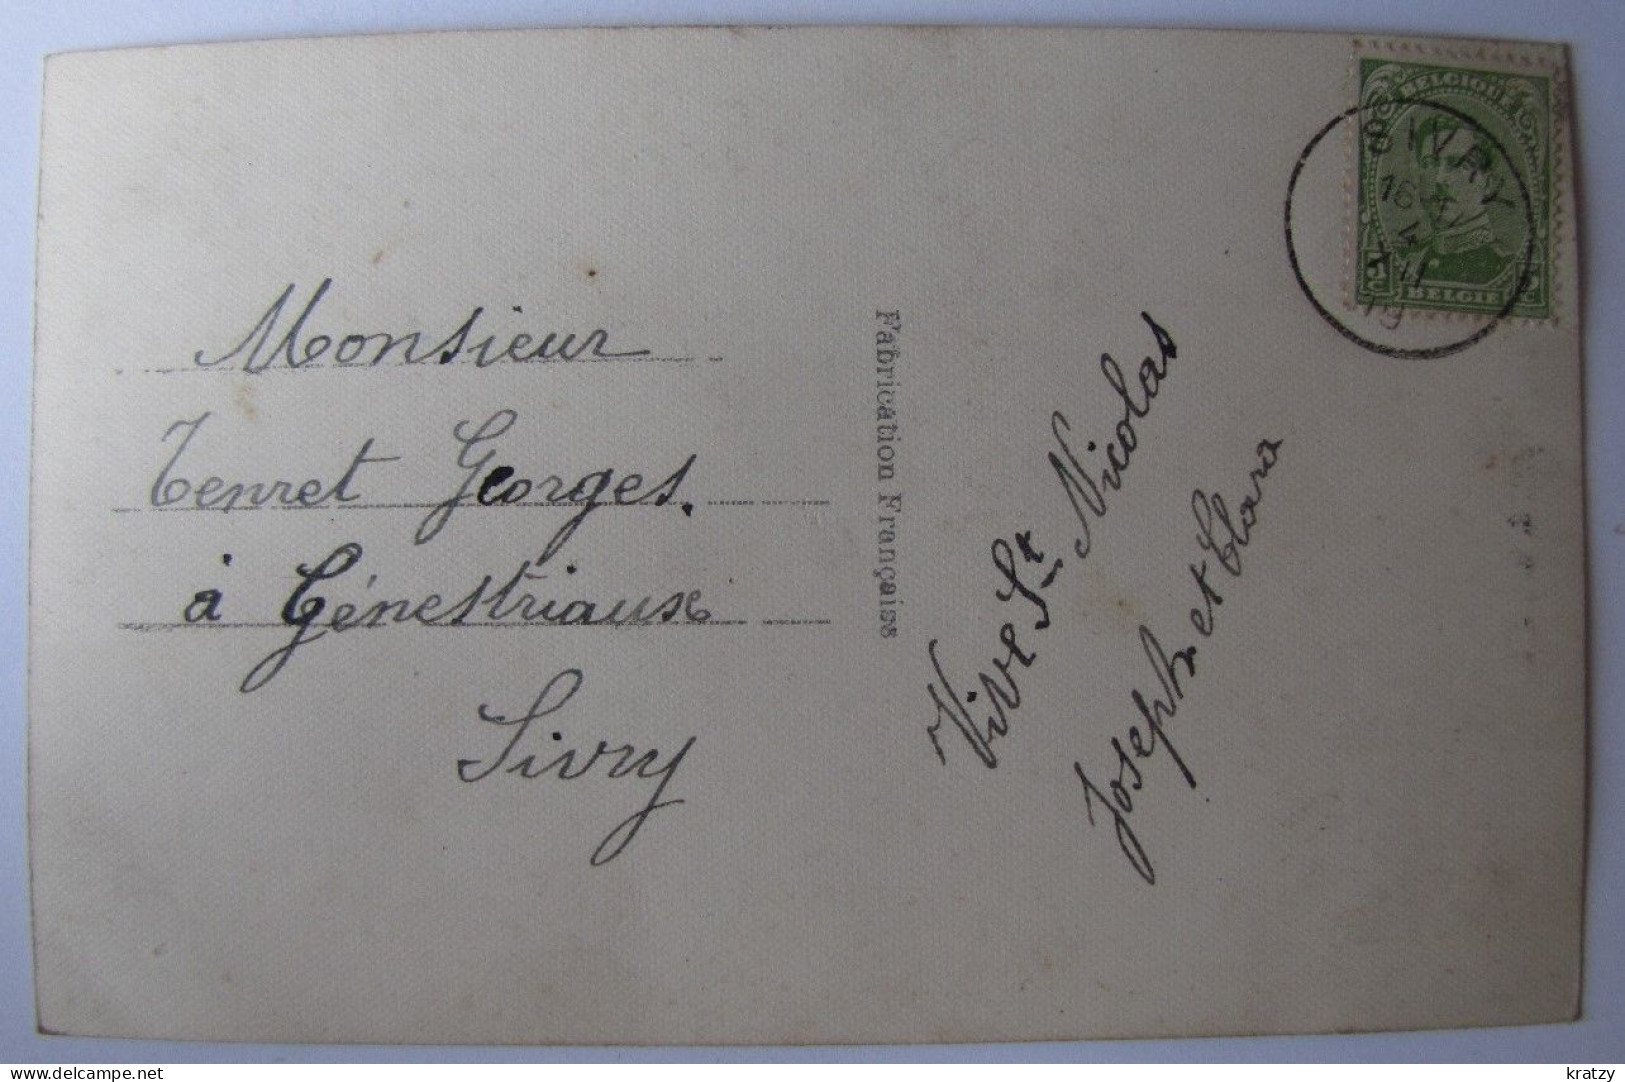 Monsieur
Tenret Georges.
à Génestriaux
Sivry
Fabrication Française
Vive St Nicolas
Joseph et Clara
BELGIQUE
SIVRY
16
4
XII
19
5c
BELGIE
kratzy
delcampe.net